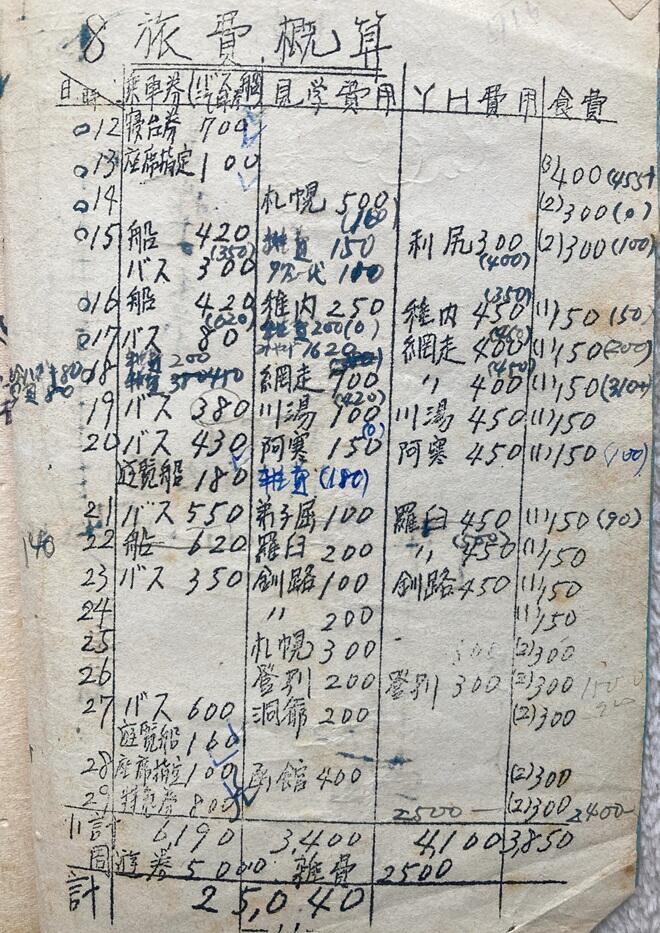 8 旅費概算
日時 乗車券(バス 船) 見学費用 YH費用 食費
12 寝台券 700
13 座席指定 100 (3)400(455)
14 札幌 500 (2)300(0)
(160)
15 船 420 雑費 150 利尻 300 (2)300(100)
(350) (400)
バス 300 100
(350)
16 船 420 稚内 250 稚内 450 (1)150(50)
(620)
17 バス 80 雑費 200(0) 網走 400 (1)150(200)
雑費 200 (450)
18 網走 100 〃 400 (1)150(310)
(420)
19 バス 380 川湯 100 川湯 450 (1)150
(0)
20 バス 430 阿寒 150 阿寒 450 (1)150(100)
遊覧船 180 雑費(180)
21 バス 550 弟子屈 100 羅臼 450 (1)150(90)
140 22 船 620 羅臼 200 〃 450 (1)150
23 バス 350 釧路 100 釧路 450 (1)150
24 〃 200 (1)150
25 札幌 300 300 (2)300
26 登別 200 登別 300 (2)300
27 バス 600 洞爺 200 (2)300
遊覧船 160
28 座席指定 100 函館 400 (2)300
29 特急券 800 2500 (2)300 2400
小計 6,190 3,400 4,100 3,850
周遊券 5000 雑費 2500
計 25,040